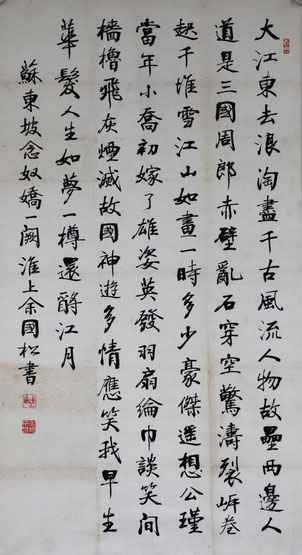 大江東去浪淘盡千古風流人物故壘西邊人
道是三國周郎赤壁亂石穿空驚濤裂岸卷
起千堆雪江山如畫一時多少豪傑遥想公瑾
當年小喬初嫁了雄姿英發羽扇綸巾談笑間
檣櫓飛灰煙滅故國神遊多情應笑我早生
華髮人生如夢一樽還酹江月
蘇東坡念奴嬌一闋淮上余國松書